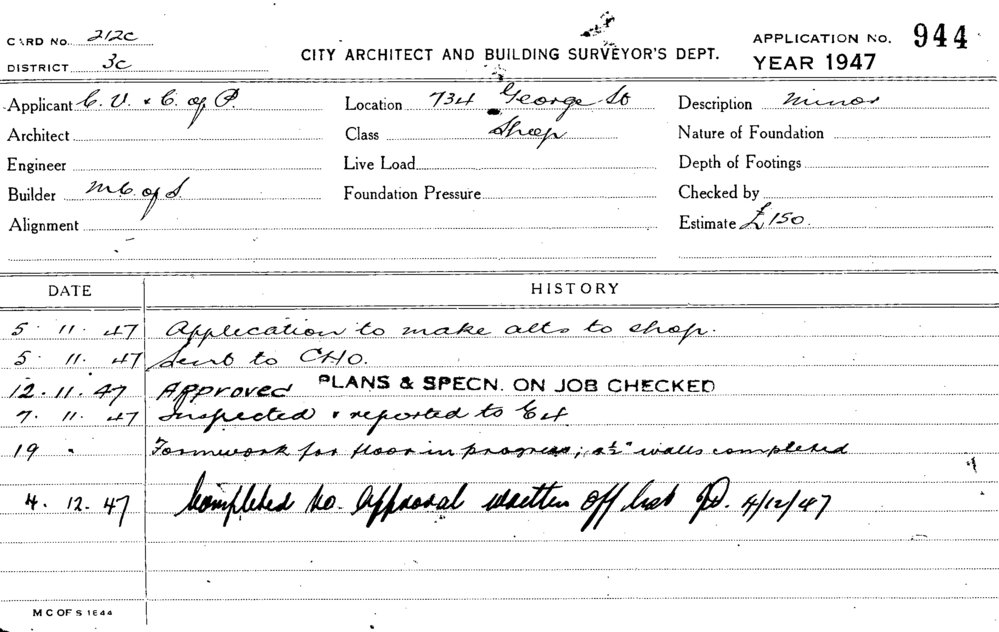 CARD No. 212C
DISTRICT 3C
CITY ARCHITECT AND BUILDING SURVEYOR'S DEPT.
APPLICATION No. 944
YEAR 1947
Applicant C. V. & C. of P. Location 734 George St Description minor
Architect Class Shop Nature of Foundation
Engineer Live Load Depth of Footings
Builder M.C. of S. Foundation Pressure Checked by
Alignment Estimate £150.
DATE HISTORY
5. 11. 47 Application to make alts to shop.
5. 11. 47 Sent to CHO.
12. 11. 47 Approved PLANS & SPECN. ON JOB CHECKED
7. 11. 47 Inspected & reported to
19 " Formwork for floor in progress; walls completed
4. 12. 47 Completed to approval written off list 4/12/47
M C OF S 1644